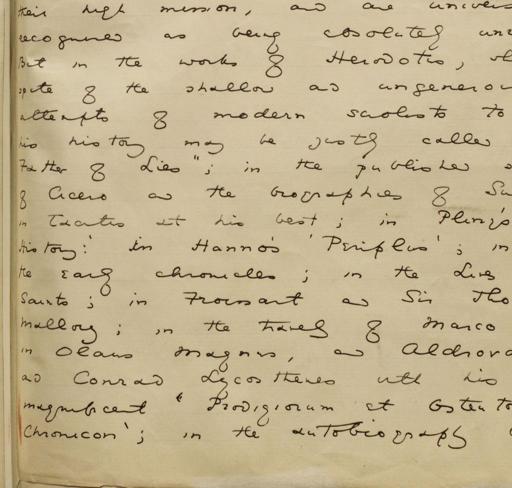 their high mission, and are univers
recognised as being absolutely un
But in the works of Herodotus,
spite of the shallow and ungenerou
attempts of modern sciolists to
his history may be justly called
Father of Lies"; in the published s
of Cicero and the biographies of Su
in Tacitus at his best; in Pliny's
History'; in Hanno's 'Periplus'; in
the Early chronicles; in the Lives
Saints; in Froissart and Sir Tho
Mallory; in the travels of Marco
in Olaus Magnus, and Aldrova
and Conrad Lycosthenes with his
magnificent 'Prodigiorum et Ostento
Chronicon'; in the autobiography